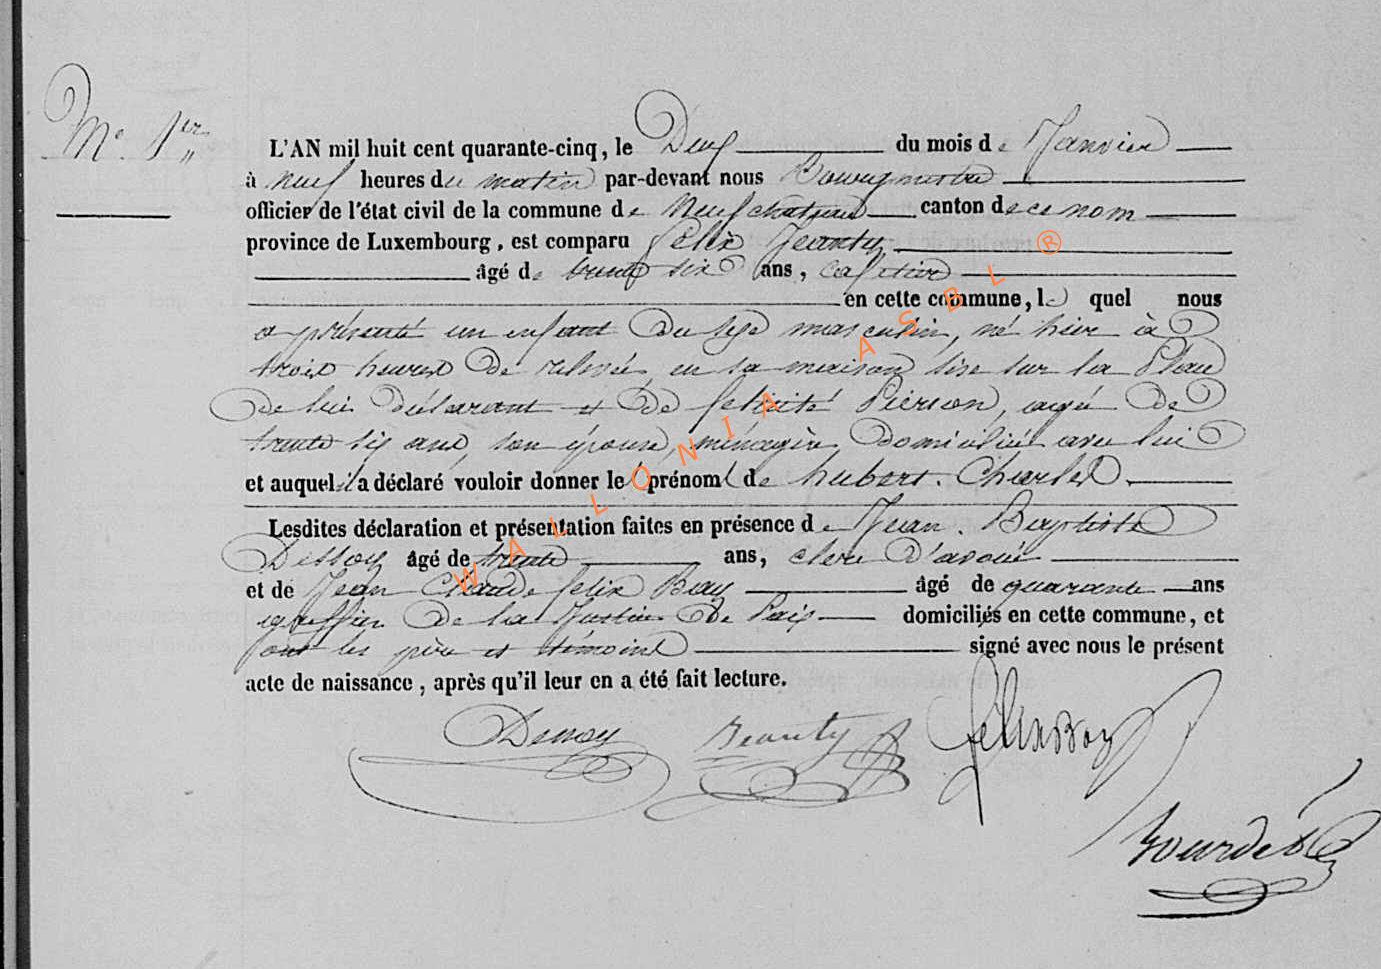 N° 1er
L'AN mil huit cent quarante-cinq, le Deux du mois de Janvier
à neuf heures du matin par-devant nous Bourgmestre
officier de l'état civil de la commune de Neufchateau canton de ce nom
province de Luxembourg, est comparu Félix Jeanty
âgé de trente six ans, cafetier
en cette commune, le quel nous
a présenté un enfant du sexe masculin, né hier à
trois heures de relevée, en sa maison sise sur la Place
de lui déclarant et de félicité Pierson, agée de
trente six ans, son épouse, ménagère, domiciliée avec lui
et auquel il a déclaré vouloir donner les prénoms de hubert. Charles.
Lesdites déclaration et présentation faites en présence de Jean. Baptiste
Dessoy âgé de trente ans, clerc d'avoué
et de Jean Claude felix Bay âgé de quarante ans
greffier de la Justice de Paix domiciliés en cette commune, et
ont les père et témoins signé avec nous le présent
acte de naissance, après qu'il leur en a été fait lecture.
Dessoy Jeanty felix Bay
WALLONIA ASBL ®